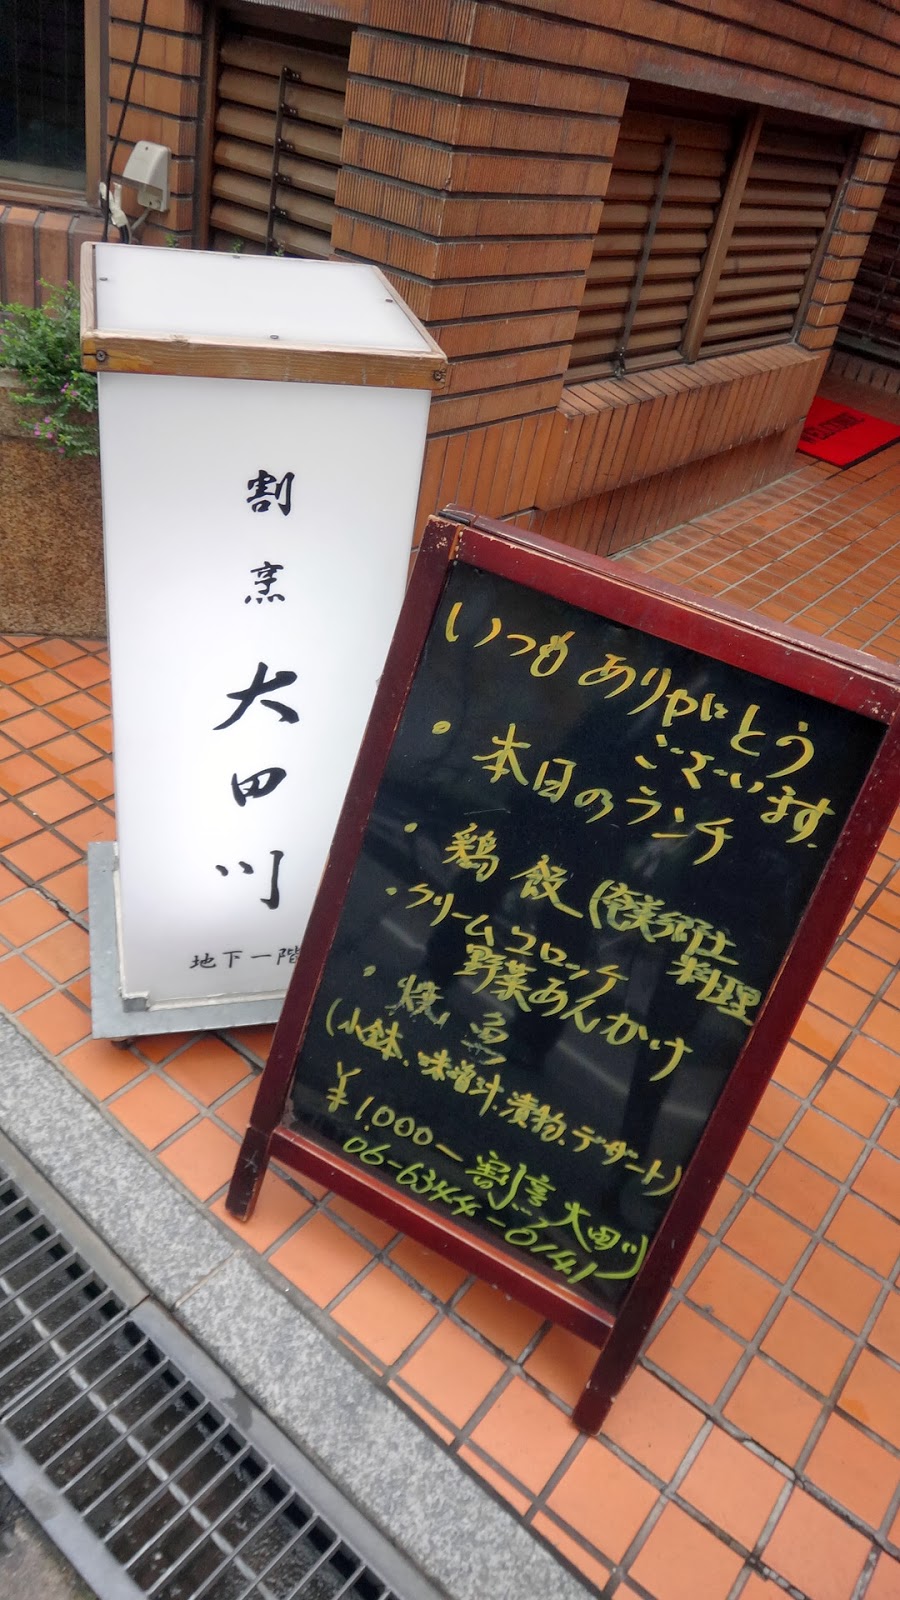 割烹
大田川
地下一階
いつもありがとう
ございます.
・本日のランチ
・鶏飯(奄美郷土
料理
・クリームコロッケ
野菜あんかけ
・焼魚
(小鉢、味噌汁、漬物、デザート)
¥1.000ー割烹大田川
06-6344-0141
WELCOME